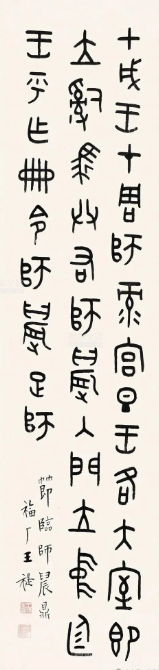 甲戌王才周師彔宮旦王各大室即
立𤔲馬共右師晨入門立中廷
王乎乍冊令師晨疋師
節臨師晨鼎
福厂王禔